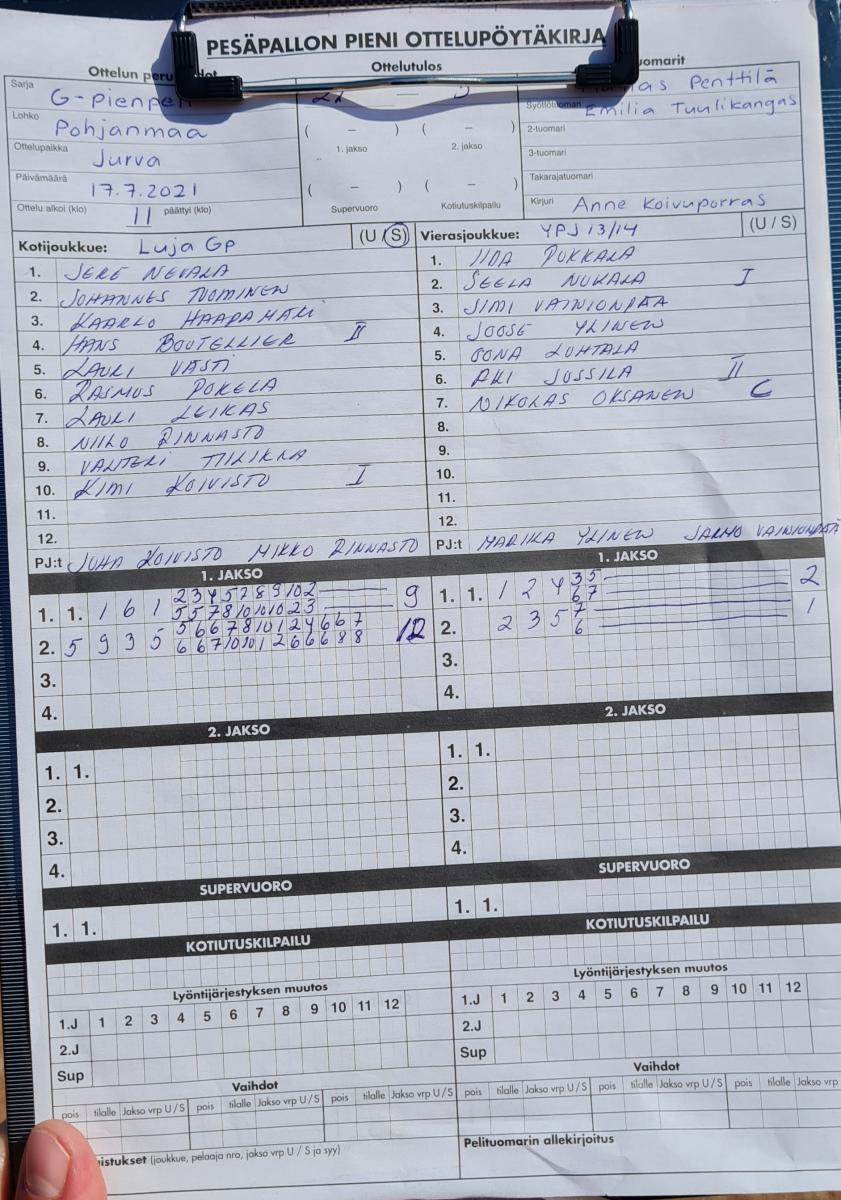 PESÄPALLON PIENI OTTELUPÖYTÄKIRJA
Ottelun
Ottelutulos
Sarja G-Pienpeli
Lohko Pohjanmaa
Ottelupaikka Jurva
Päivämäärä 17.7.2021
Ottelu alkoi (klo) 11 päättyi (klo)
( – ) ( – )
1. jakso 2. jakso
( – ) ( – )
Supervuoro Kotiutuskilpailu
Penttilä
Emilia Tuulikangas
2-tuomari
3-tuomari
Takarajatuomari
Kirjuri Anne Koivuporras
Kotijoukkue: Luja GP (U / S)
1. JERE NEVALA
2. JOHANNES TUOMINEN
3. KAARLO HAAPAMÄKI
4. HANS BOUTELLIER II
5. LAURI VÄSTI
6. RASMUS POKELA
7. LAURI LEIKAS
8. NIILO RINNASTO
9. VALTTERI
10. KIMI KOIVISTO I
11.
12.
PJ:t JUHA KOIVISTO MIKKO RINNASTO
Vierasjoukkue: YPJ 13/14 (U / S)
1. IIDA PUKKALA
2. SEELA NUKALA I
3. SIMI VAINIONPÄÄ
4. JOOSE YLINEN
5. OONA LUHTALA
6. AKI JUSSILA II
7. NIKOLAS OKSANEN C
8.
9.
10.
11.
12.
PJ:t MARIKA YLINEN JARMO VAINIONPÄÄ
1. JAKSO
1. 1. 1 6 1 2 3 4 5 7 8 9 10 2 9
5 5 7 8 10 10 10 2 3
2. 5 9 3 5 5 6 6 7 8 10 1 2 4 6 6 7 12
6 6 7 10 10 1 2 6 6 6 8 8
3.
4.
1. JAKSO
1. 1. 1 2 4 3 5 2
6 7
2. 2 3 5 7 1
6
3.
4.
2. JAKSO
1. 1.
2.
3.
4.
2. JAKSO
1. 1.
2.
3.
4.
SUPERVUORO
1. 1.
SUPERVUORO
1. 1.
KOTIUTUSKILPAILU
KOTIUTUSKILPAILU
Lyöntijärjestyksen muutos
1.J 1 2 3 4 5 6 7 8 9 10 11 12
2.J
Sup
Lyöntijärjestyksen muutos
1.J 1 2 3 4 5 6 7 8 9 10 11 12
2.J
Sup
Vaihdot
pois tilalle Jakso vrp U / S pois tilalle Jakso vrp U / S pois tilalle Jakso vrp U / S
Vaihdot
pois tilalle Jakso vrp U / S pois tilalle Jakso vrp U / S pois tilalle Jakso vrp
(joukkue, pelaaja nro, jakso vrp U / S ja syy)
Pelituomarin allekirjoitus